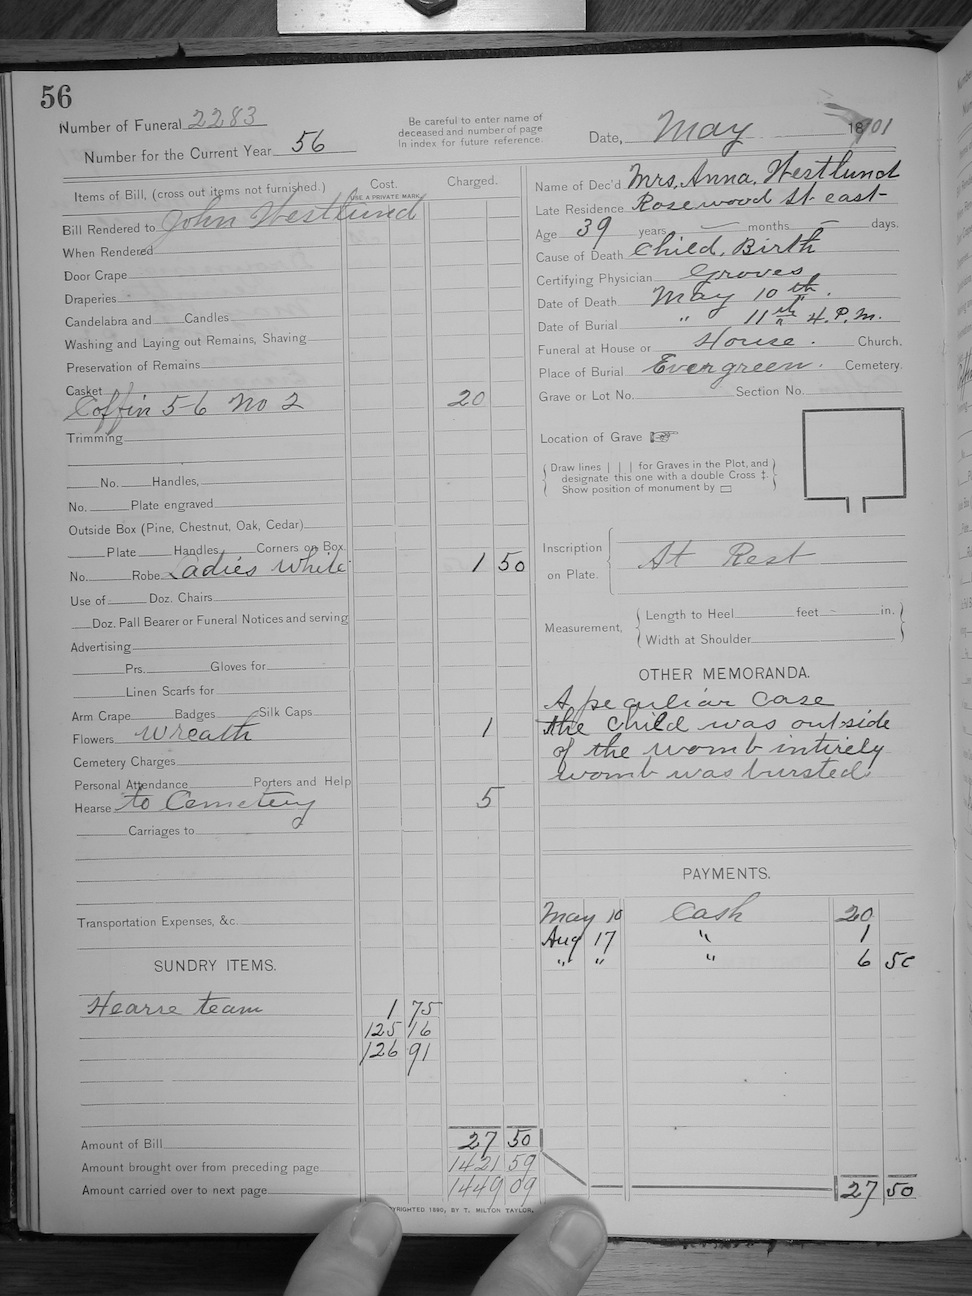 56
Number of Funeral 2283
Number for the Current Year 56
Be careful to enter name of
deceased and number of page
in index for future reference.
Date, May 1901
Items of Bill, (cross out items not furnished.)
Cost.
USE A PRIVATE MARK.
Charged.
Bill Rendered to John Westlund
When Rendered
Door Crape
Draperies
Candelabra and Candles
Washing and Laying out Remains, Shaving
Preservation of Remains
Casket
Coffin 5-6 No 2 20
Trimming
No. Handles,
No. Plate engraved
Outside Box (Pine, Chestnut, Oak, Cedar)
Plate Handles Corners on Box
No. Robe Ladies White 1 50
Use of Doz. Chairs
Doz. Pall Bearer or Funeral Notices and serving
Advertising
Prs. Gloves for
Linen Scarfs for
Arm Crape Badges Silk Caps
Flowers Wreath 1
Cemetery Charges
Personal Attendance Porters and Help
Hearse to Cemetery 5
Carriages to
Transportation Expenses, &c.
SUNDRY ITEMS.
Hearse team 1 75
125 16
126 91
Amount of Bill 27 50
Amount brought over from preceding page 1421 59
Amount carried over to next page 1449 09
Name of Dec'd Mrs. Anna. Westlund
Late Residence Rosewood St east
Age 39 years months days.
Cause of Death Child. Birth
Certifying Physician Groves
Date of Death May 10th.
Date of Burial " 11th 4. P.M.
Funeral at House or House. Church.
Place of Burial Evergreen. Cemetery.
Grave or Lot No. Section No.
Location of Grave
Draw lines | | | for Graves in the Plot, and
designate this one with a double Cross ‡.
Show position of monument by ▭
Inscription
on Plate.
At Rest
Measurement,
Length to Heel feet in.
Width at Shoulder
OTHER MEMORANDA.
A peculiar case
the child was outside
of the womb intirely
womb was bursted.
PAYMENTS.
May 10 Cash 20
Aug 17 " 1
" " " 6 50
27 50
COPYRIGHTED 1890, BY T. MILTON TAYLOR,